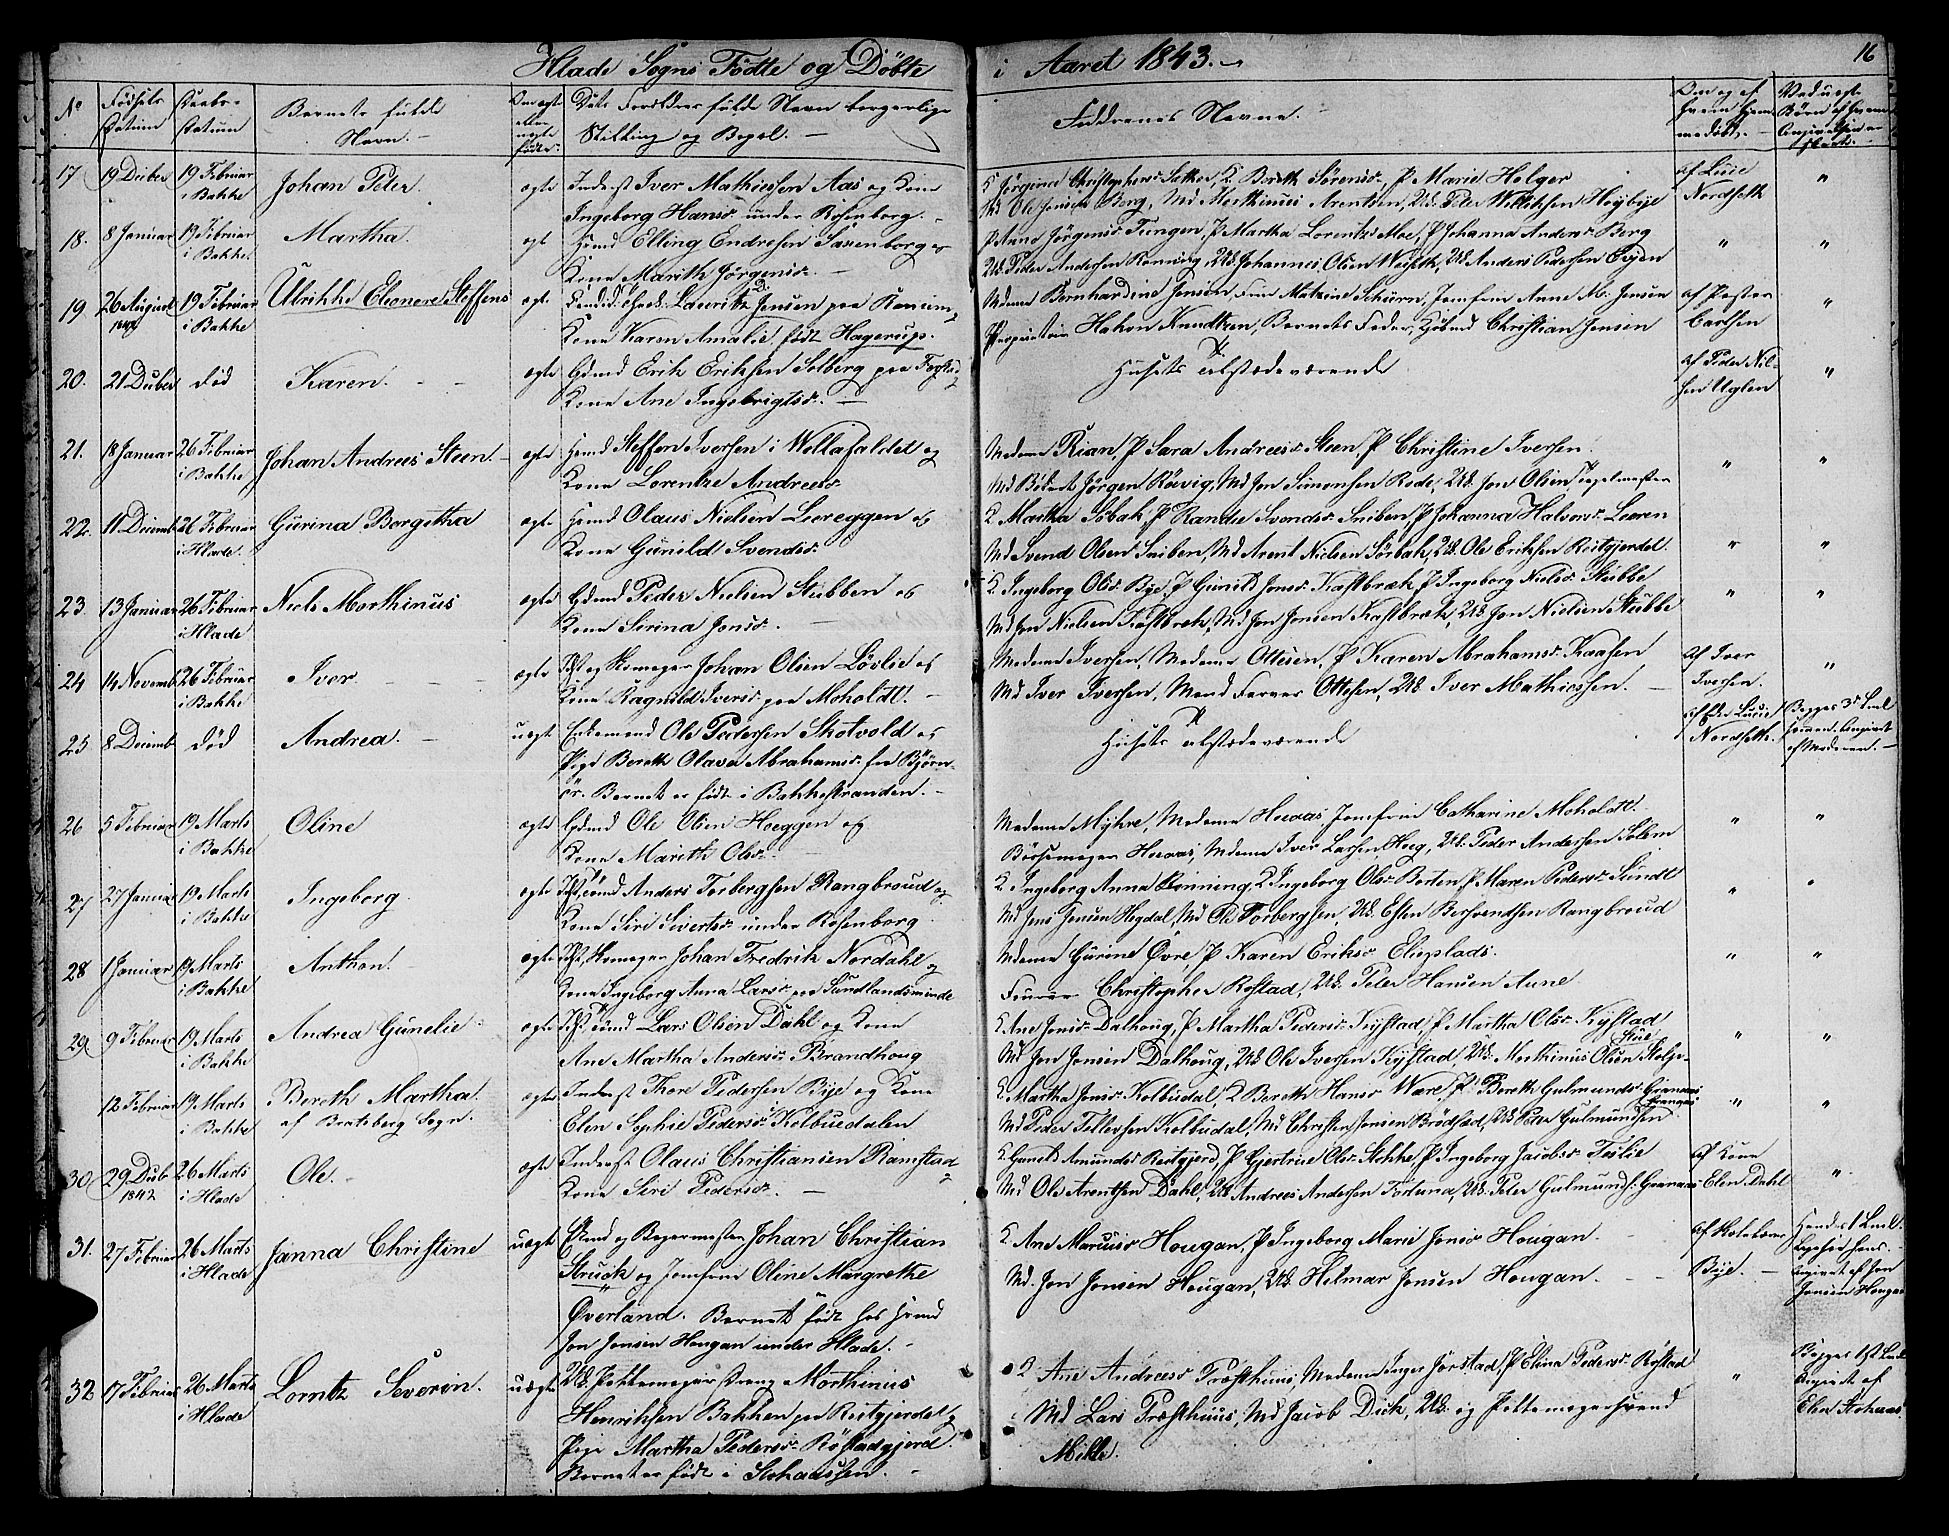 Hlade Sogns Födte og Döbte i Aaret 1843.
16
No
Födsels Datum
Daabs-Datum
Barnets fulde Navn.
ægte eller uægte födte
Forældres fulde Navn borgerlige Stilling og Bopæl.
Faddernes Navne.
17 19 Decber 19 Februar i Bakke Johan Peter. ægte Inderst Iver Mathiesen Aas og Kone
Ingeborg Hansd. under Rosenborg.
K Jörgine Christophersd. K. Bereth Sörensd. P Marie Holger
Md Ole Jensen Berg, Md Morthinus Arentsen, Uk. Peter Willichsen Höybye
af Lucie Nordseth "
18. 8 Januar 19 Februar i Bakke Martha. ægte Hmd Elling Endresen Saxenborg og
Kone Marith Jörgensd.
P Anne Jörgensd. Tungen, P Martha Lorentsd. Moe, P Johanna Andersd. Berg
Uk. Peder Andersen Rönning, Uk Johannes Olsen Weiseth, Uk. Anders Pedersen Engen
" "
19 26 August 1842 19 Februar i Bakke Ulrikke Eleonore Steffens ægte Lauritz D. Jensen paa Ranem,
Kone Karen Amalie född Hagerup.
Madame Bernhardine Jensen, Frue Mathine Schiörn, Jomfrue Anne M. Jensen
Proprietair Hakon Knudtzon, Barnets Fader, Christian Jensen
af Pastor Carlsen "
20. 21 Decber död Karen. ægte Gdmd Erik Eriksen Solberg paa
Kone Ane Ingebrigtsd.
Husets tilstædeværende
af Peder Nilsen Uglen "
21. 18 Januar 26 Februar i Bakke Johan Andreas Steen. ægte Hmd Steffen Iversen i Wollafaldet og
Kone Lorentze Andreasd.
Madame Rian, P Sara Andreasd. Steen, P Christine Iversen.
Md Jörgen Rövig, Md Jon Simonsen Rode, Uk. Jon Olsen Teglmester
" "
22. 11 Decemb 26 Februar i Hlade. Gurina Bergetha ægte Hmd Olaus Nielsen Leereggen og
Kone Gunild Svendsd.
K Martha Söbak, P Randie Svendsd. Sniben, P Johanna Halvorsd. Leeren
Md Svend Olsen Sniben, Md Arent Nielsen Sörbak, Uk. Ole Eriksen Reitgjerdet.
" "
23. 13 Januar 26 Februar i Hlade Niels Morthinus ægte Gdmd Peder Nielsen Stubben og
Kone Serina Jonsd.
K. Ingeborg Olsd. Bye, P Gunild Jonsd. Kastbrek, P Ingeborg Nielsd. Stubbe
Md Jon Nielsen Kastbrek, Md Jon Jonsen Kastbrek, Uk. Jon Nielsen Stubbe
" "
24 14 Novemb 26 Februar i Bakke Iver. ægte Skomager Johan Olsen Lövlie og
Kone Ragnild Iversd. paa Moholdt.
Madame Iversen, Madame Ottesen, P Karen Abrahamsd. Kaasen
Md Iver Iversen, Mand Ottesen, Uk. Iver Mathiessen.
af Iver Iversen. "
25 8 Decemb död Andrea. uægte Enkemand Ole Pedersen Skotvold og
Pige Bereth Olava Abrahamsd. fra Björnör. Barnet er födt i Bakkestranden.
Husets tilstædeværende
af Lucie Nordseth. Begges 3d Angivet af Moderen.
26 5 Februar 19 Marts i Bakke Oline ægte Gdmd Ole Olsen Hoeggen og
Kone Marith Olsd.
Madame Myhre, Madame Huvas, Jomfrue Catharine Moholdt.
Börsemager Huvas, Iver Larsen Haug, Uk. Peder Andersen Solem
" "
27 27 Januar 19 Marts i Bakke Ingeborg ægte Anders Torbergsen Rangbroud og
Kone Siri Sivertsd. under Rosenborg
K. Ingeborg Anna Rönning, K Ingeborg Olsd. Berten, P Maren Pedersd. Sundt
Md Jens Jensen Hegdal, Md Ole Torbergsen, Uk. Esten Bersvendsen Rangbroud
" "
28 1 Januar 19 Marts i Bakke Anthon. ægte Skomager Johan Fredrik Nordahl og
Kone Ingeborg Anna Larsd. paa Sundlandsminde
Madame Gurine Övre, P Karen Eriksd. Elieplads.
Christopher Rostad, Uk. Peter Hansen Aune
" "
29. 9 Februar 19 Marts i Bakke Andrea Gunelie ægte Lars Olsen Dahl og Kone
Ane Martha Andersd. Brandhoug
K Ane Jonsd. Dalhoug, P Martha Pedersd. Kystad, P Martha Olsd. Kystad
Md Jon Jonsen Dalhoug, Uk. Ole Iversen Kystad, Uk. Morthinus Olsen
" "
12 Februar 19 Marts i Bakke Bereth Martha. af Bratsberg Sogn. ægte Inderst Thore Pedersen Bye og Kone
Elen Sophie Pedersd. Kolbuedalen
K Martha Jonsd. Kolbudal, K Bereth Hansd. Ware, P. Bereth Gulmundsd. Granaas
Md Peder Tellevsen Kolbudal, Md Christen Jonsen Brödstad, Uk Peter Gulmundsen Granaas
" "
30 29 Decb 1842 26 Marts i Hlade Ole. ægte Inderst Olaus Christiansen Ramstad
Kone Siri Pedersd.
K. Gunild Amundsd. Reitgjerd, P Gjertrue Olsd. Stokke, P Ingeborg Jacobsd. Tuslie
Md Ole Arentsen Dahl, Uk Andreas Andersen Fortuna, Uk. Peter Gulmunds. Granaas
af Kone Elen Dahl "
31. 27 Februar 26 Marts i Hlade Janna Christine uægte og Bagermester Johan Christian
Struck og Jomfrue Oline Margrethe
Överland. Barnet födt hos Hmd
Jon Jonsen Hougan under Hlade.
K. Ane Marcusd. Hougan, P Ingeborg Marie Jonsd. Hougan.
Md. Jon Jonsen Hougan, Uk. Hilmar Jonsen Hougan.
Bye. Hendes 1 angivet af Jon Jonsen Hougan
32 17 Februar 26 Marts i Hlade Lorntz Severin. uægte Uk. Pottemagersvend Morthinus
Henriksen Bakken paa Reitgjerdet og
Pige Martha Pedersd. Röstadgjerd.
Barnet er födt i Stohaussen.
K Ane Andreasd. Presthuus, Madame Inger Jörstad, P Elina Pedersd. Röstad
Md Lars Presthuus, Md Jacob Dick, Uk. og Pottemagersvend
Mikle.
" Begges 1ste Angivet af Elen Stohaus